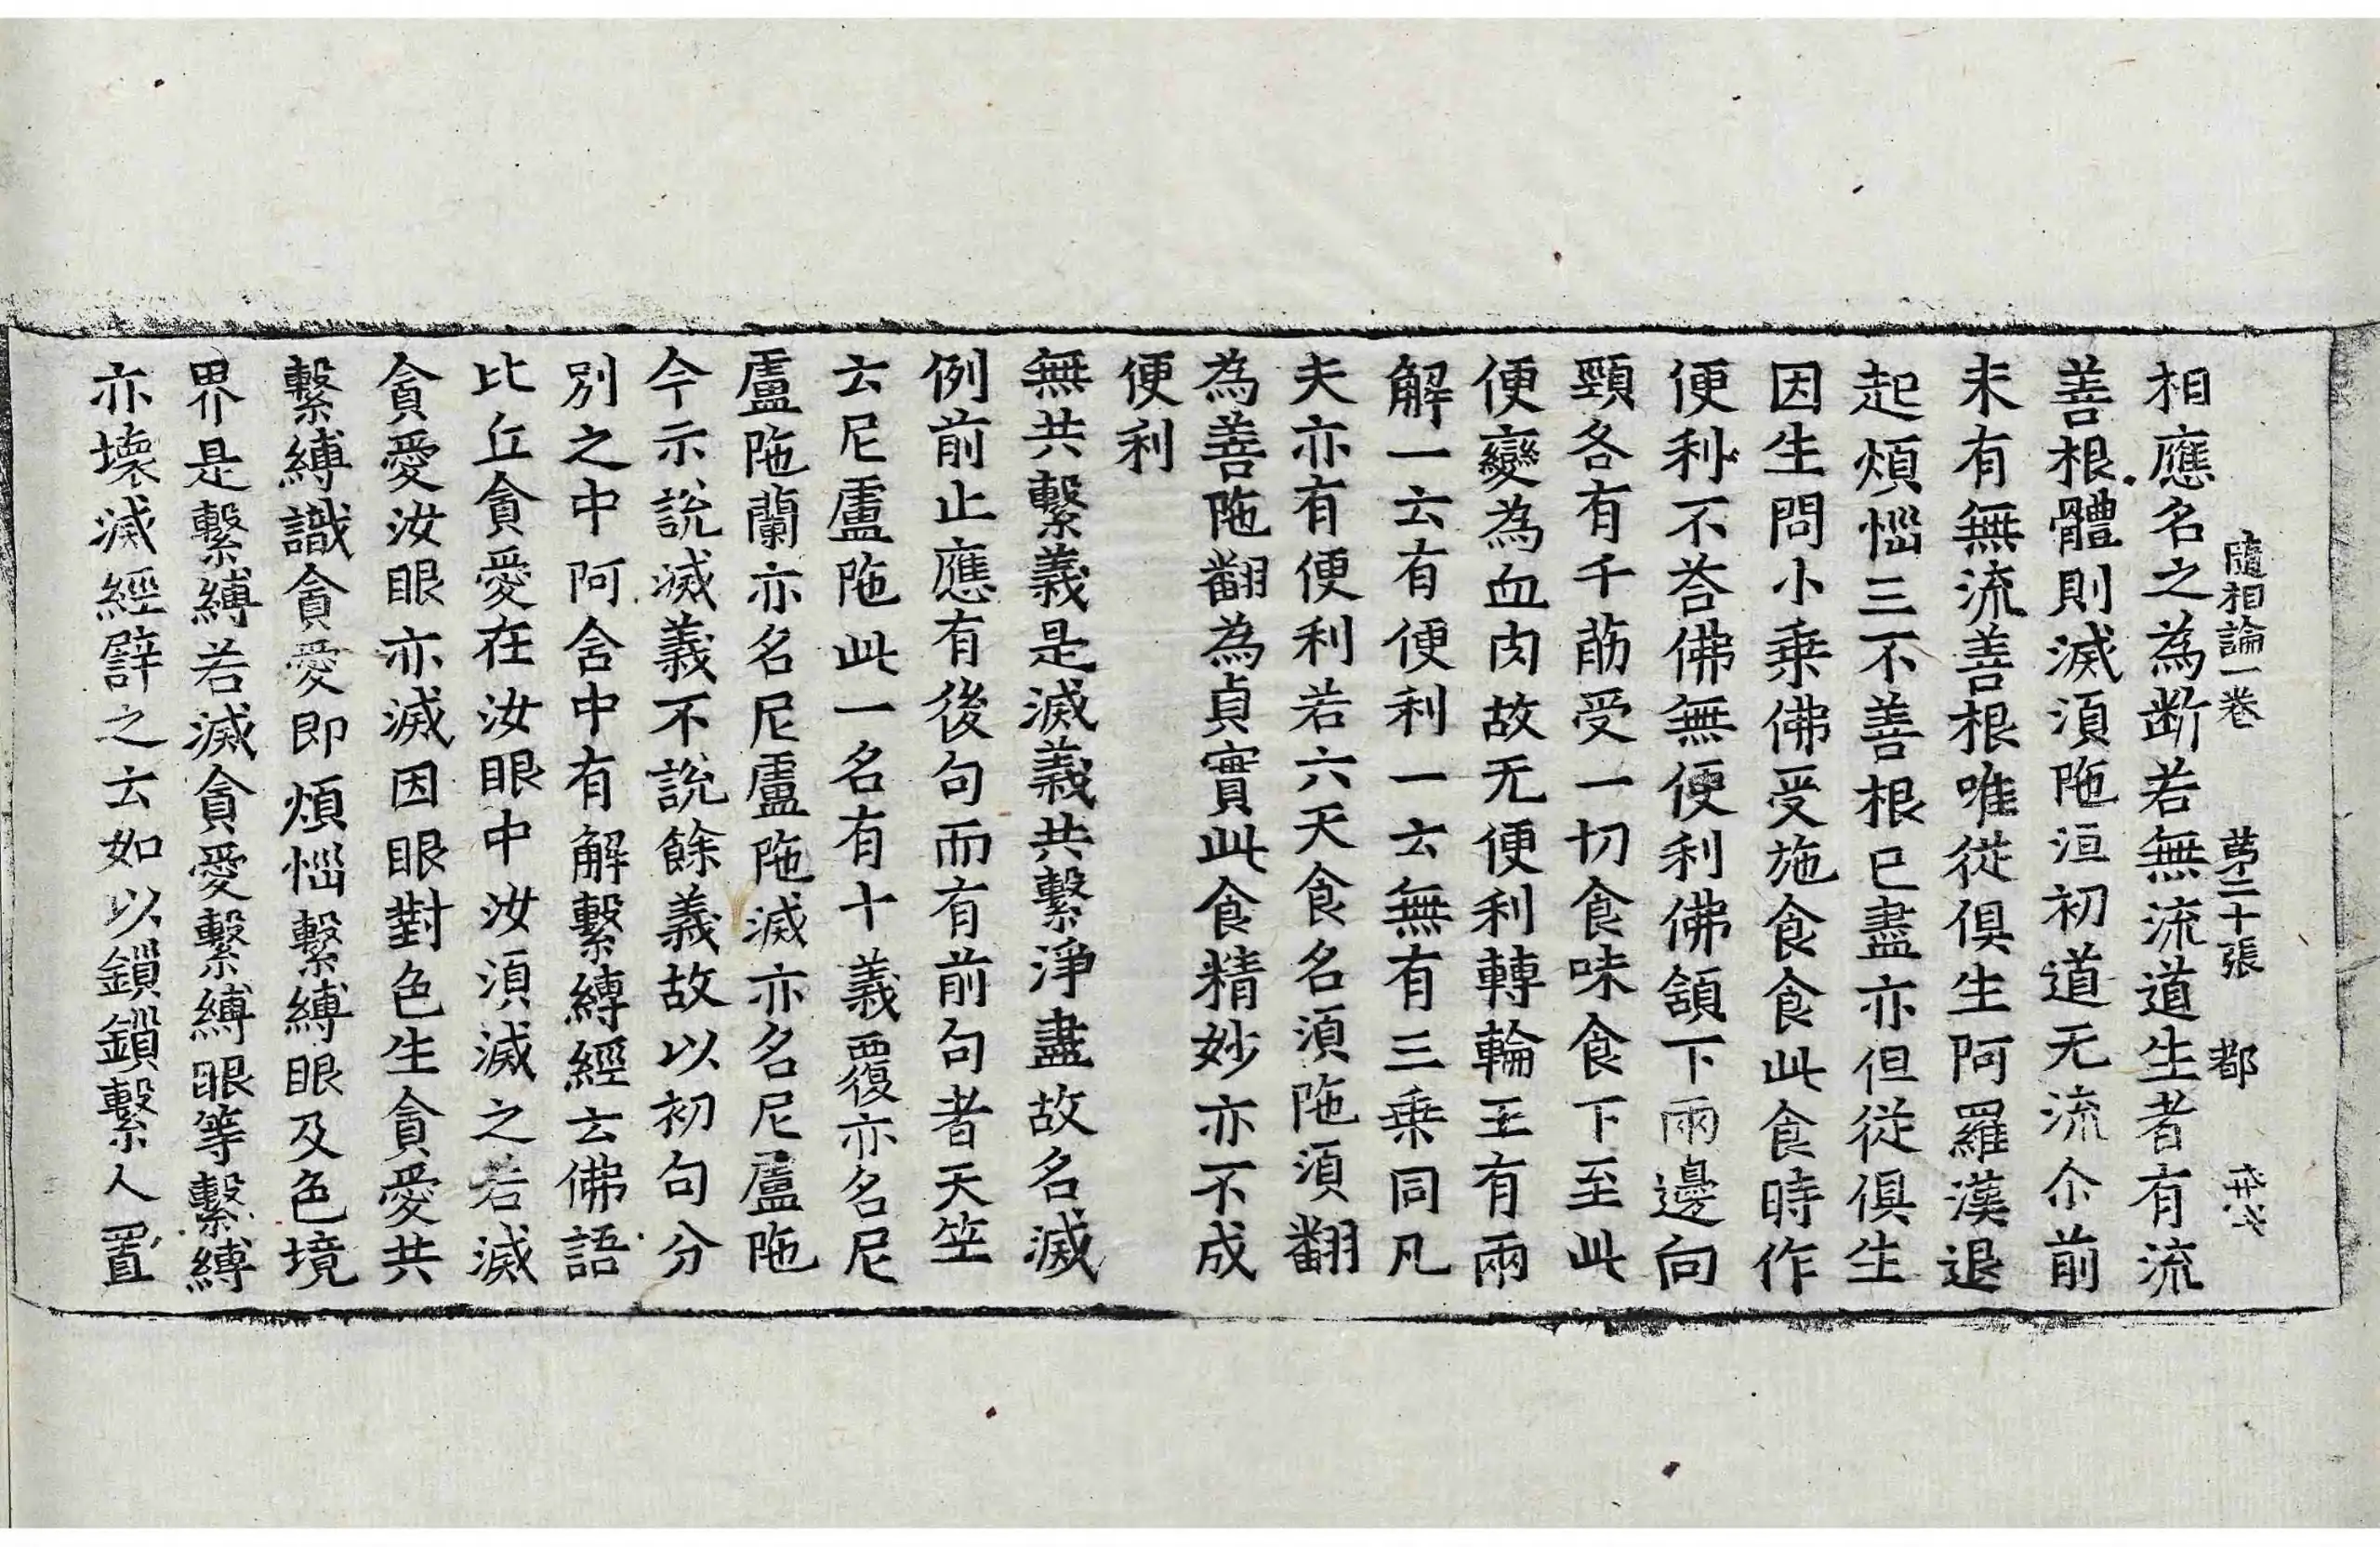 隨相論一卷 第二十張 都
相應名之為断若無流道生者有流
善根體則滅湏陁洹初道无流尒前
未有無流善根唯從俱生阿羅漢退
起煩惱三不善根已盡亦但從俱生
因生問小乗佛受施食食此食時作
便利不荅佛無便利佛頷下兩邊向
頸各有千莇受一切食味食下至此
便變為血肉故无便利轉輪王有兩
解一云有便利一云無有三乗同凡
夫亦有便利若六天食名湏陁湏翻
為善陁翻為貞實此食精妙亦不成
便利
無共繫義是滅義共繫淨盡故名滅
例前止應有後句而有前句者天竺
云尼盧陁此一名有十義覆亦名尼
盧陁蘭亦名尼盧陁滅亦名尼盧陁
今示說滅義不說餘義故以初句分
別之中阿含中有解繫縛經云佛語
比丘貪愛在汝眼中汝湏滅之若滅
貪愛汝眼亦滅因眼對色生貪愛共
繫縛識貪愛即煩惱繫縛眼及色境
界是繫縛若滅貪愛繫縛眼等繫縛
亦壞滅經辟之云如以鎖鎖繫人置